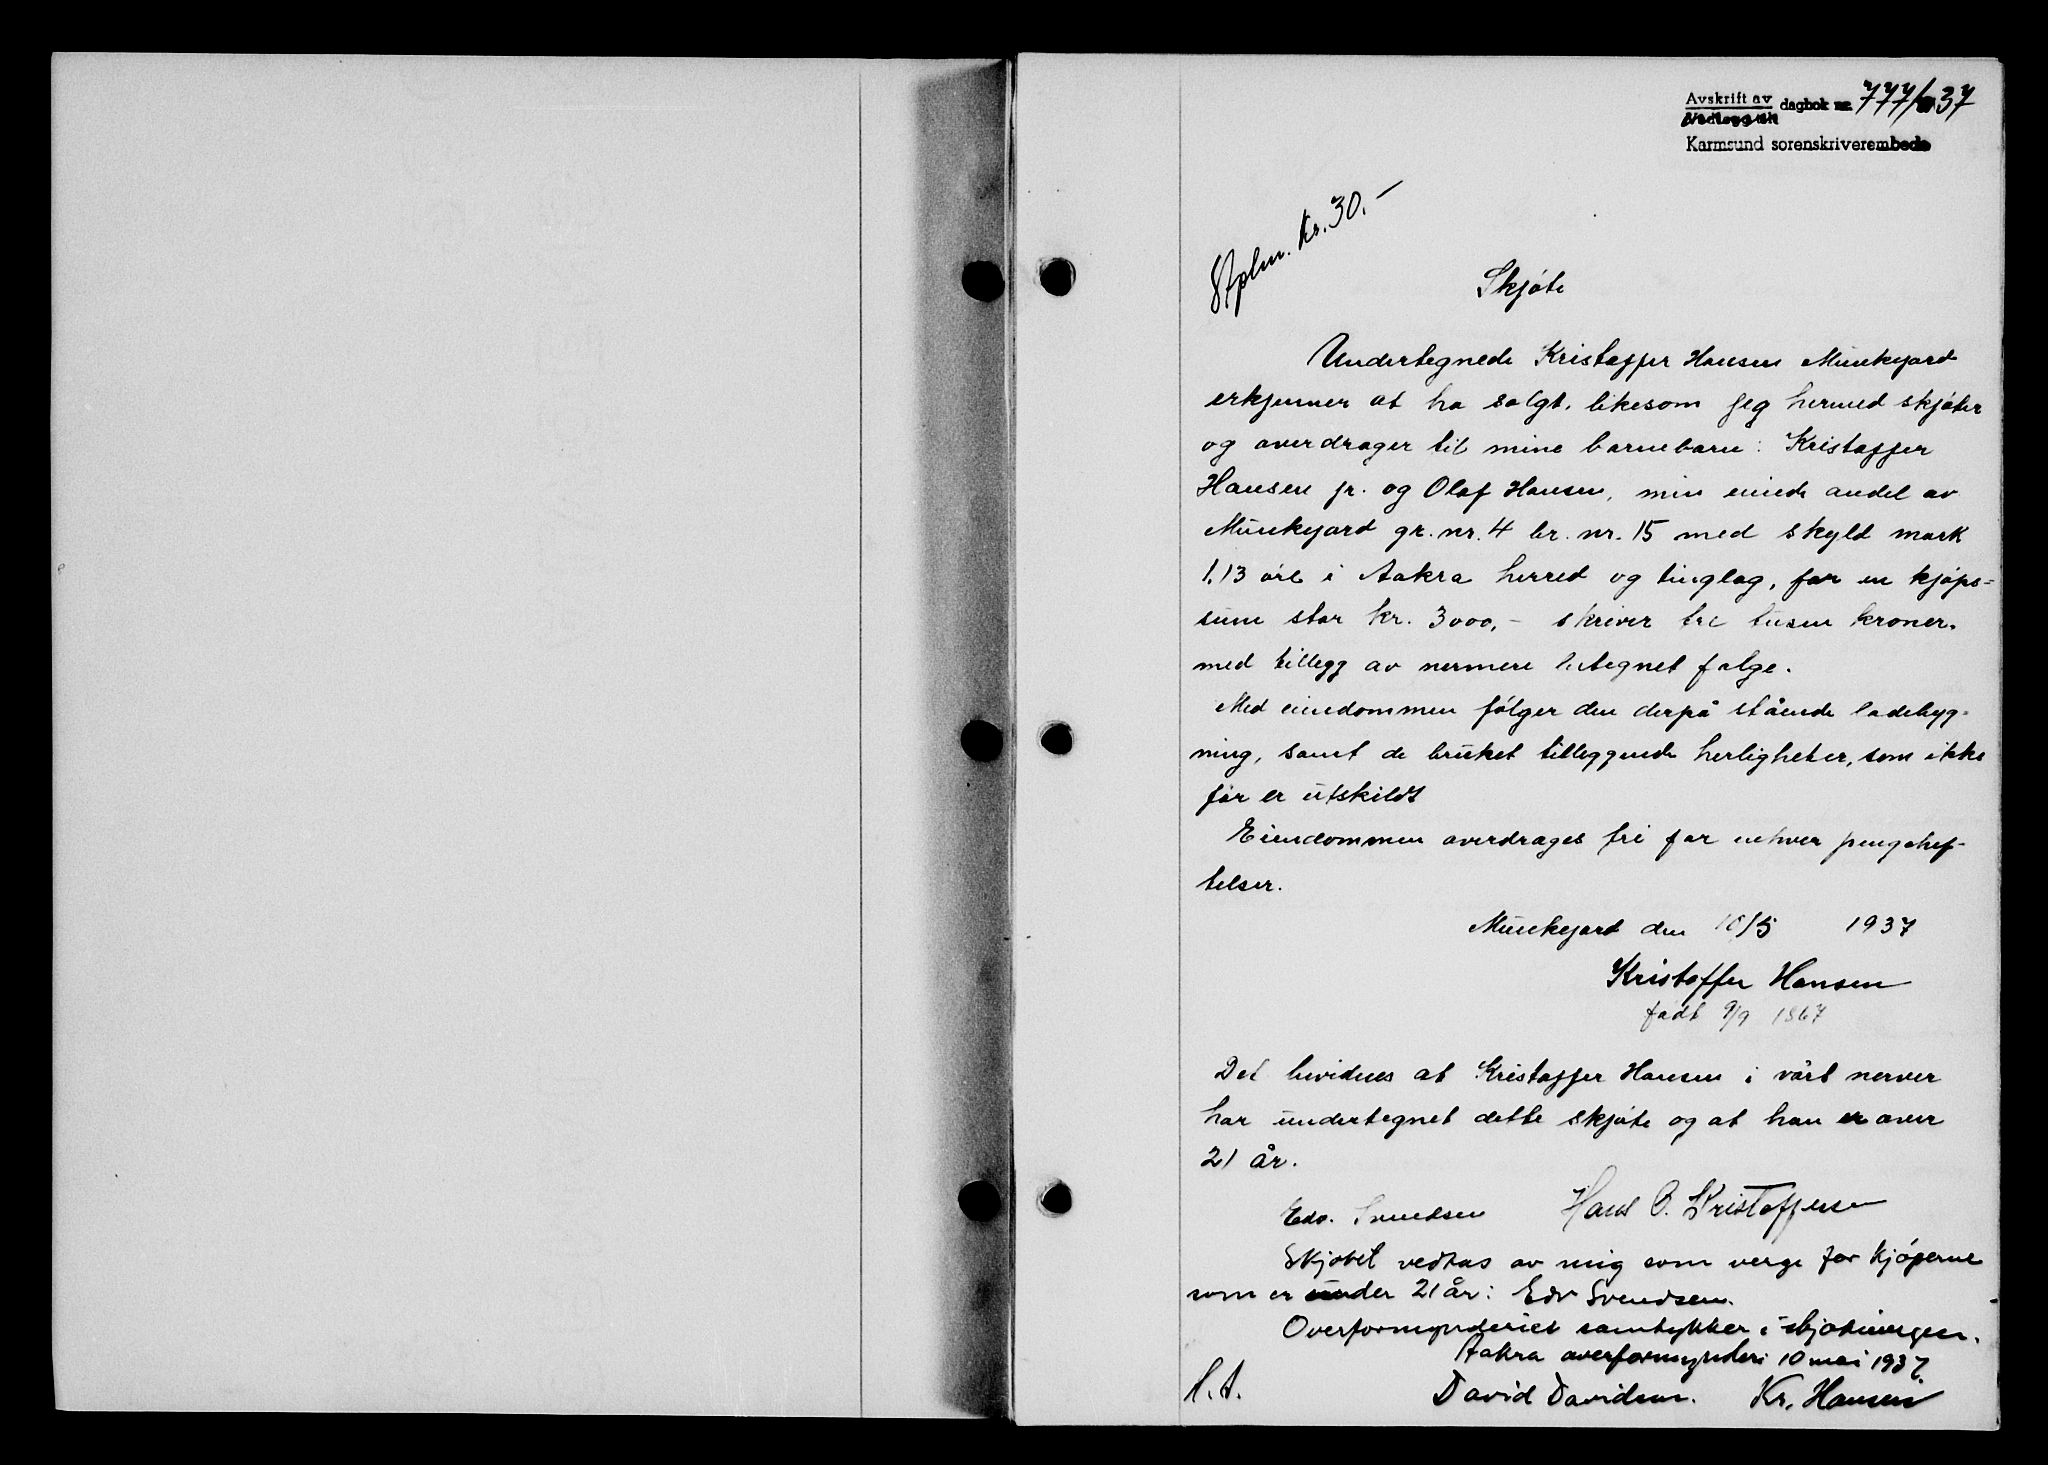 Avskrift av dagbok nr. 777/1937
Karmsund sorenskriverembede
Stplm. kr. 30.-
Skjøte
Undertegnede Kristoffer Hansen Munkejord
erkjenner at ha solgt, likesom jeg hermed skjøter
og overdrager til mine barnebarn: Kristoffer
Hansen jr. og Olaf Hansen, min eiende andel av
Munkejord gr. nr. 4 br. nr. 15 med skyld mark
1.13 øre i Aakra herred og tinglag, for en kjøps=
sum stor kr. 3000,- skriver tre tusen kroner.
med tillegg av nermere betegnet følge.
Med eiendommen følger den derpå stående ladebyg-
ning, samt de bruket tilleggende herligheter, som ikke
før er utskildt
Eiendommen overdrages fri for enhver pengehef-
telser.
Munkejord den 10/5 1937
Kristoffer Hansen
født 9/9 1867
Det bevidnes at Kristoffer Hansen i vårt nerver
har undertegnet dette skjøte og at han er over
21 år.
Edv. Svendsen Hans O. Kristoffersen
Skjøtet vedtas av mig som verge for kjøperne
som er under 21 år: Edv Svendsen.
Overformynderiet samtykker i skjøtningen.
Aakra overformynderi 10 mai 1937.
David Davidsen. Kr. Hansen